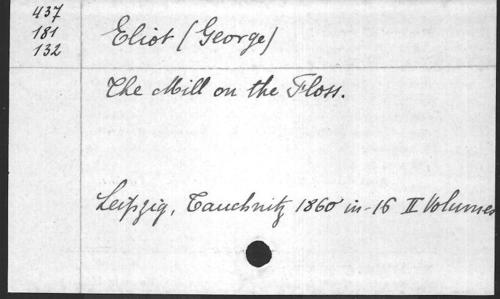 437
181
132
Eliot (George)
The Mill on the Floss.
Leipzig, Tauchnitz 1860 in-16 II Volumes